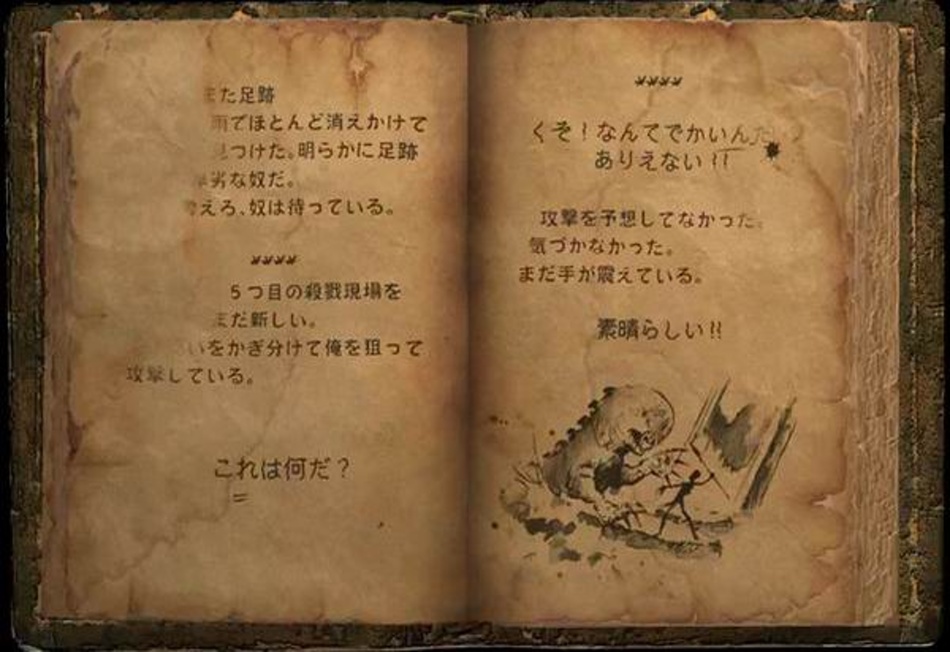 また足跡
雨でほとんど消えかけて
見つけた。明らかに足跡
卑劣な奴だ。
考えろ、奴は待っている。
５つ目の殺戮現場を
まだ新しい。
いをかぎ分けて俺を狙って
攻撃している。
これは何だ？
くそ！なんてでかいんだ
ありえない！！
攻撃を予想してなかった。
気づかなかった。
まだ手が震えている。
素晴らしい！！